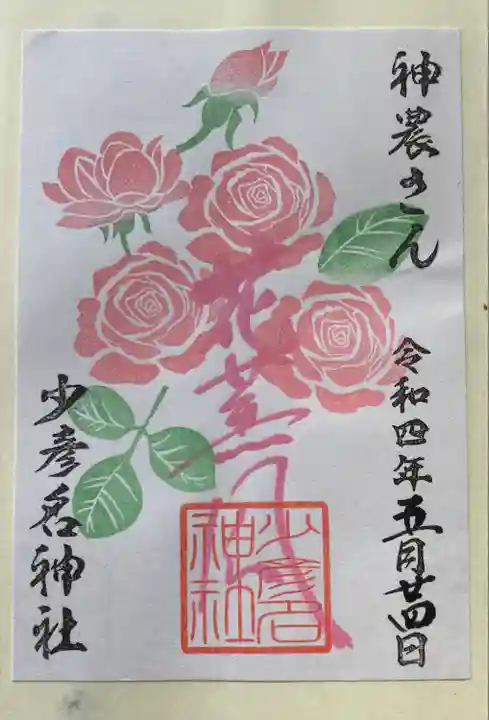 神農さん
令和四年五月廿四日
花薫る
少彦名神社
少彦名
神社